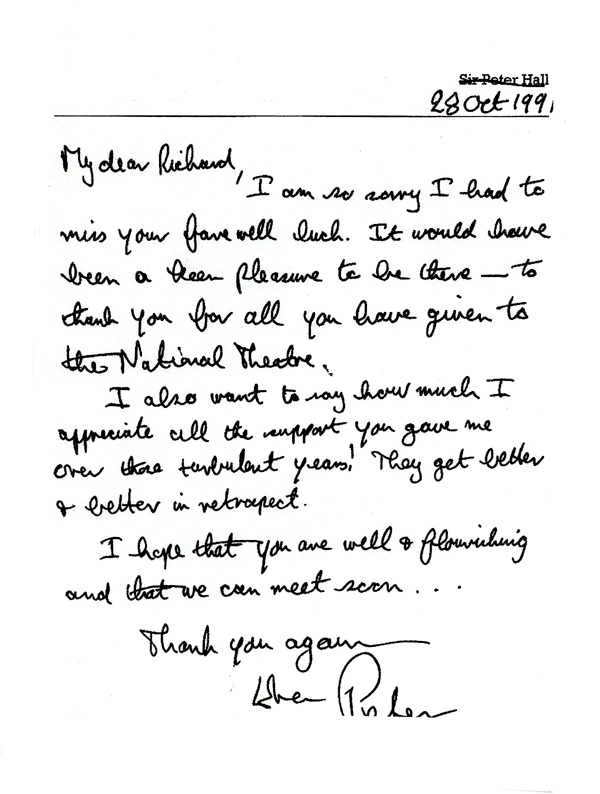 Sir Peter Hall
28 Oct 1991
My dear Richard,
I am so sorry I had to
miss your farewell luch. It would have
been a keen pleasure to be there — to
thank you for all you have given to
the National Theatre.
I also want to say how much I
appreciate all the support you gave me
over those turbulent years! They get better
& better in retrospect.
I hope that you are well & flourishing
and that we can meet soon ...
Thank you again